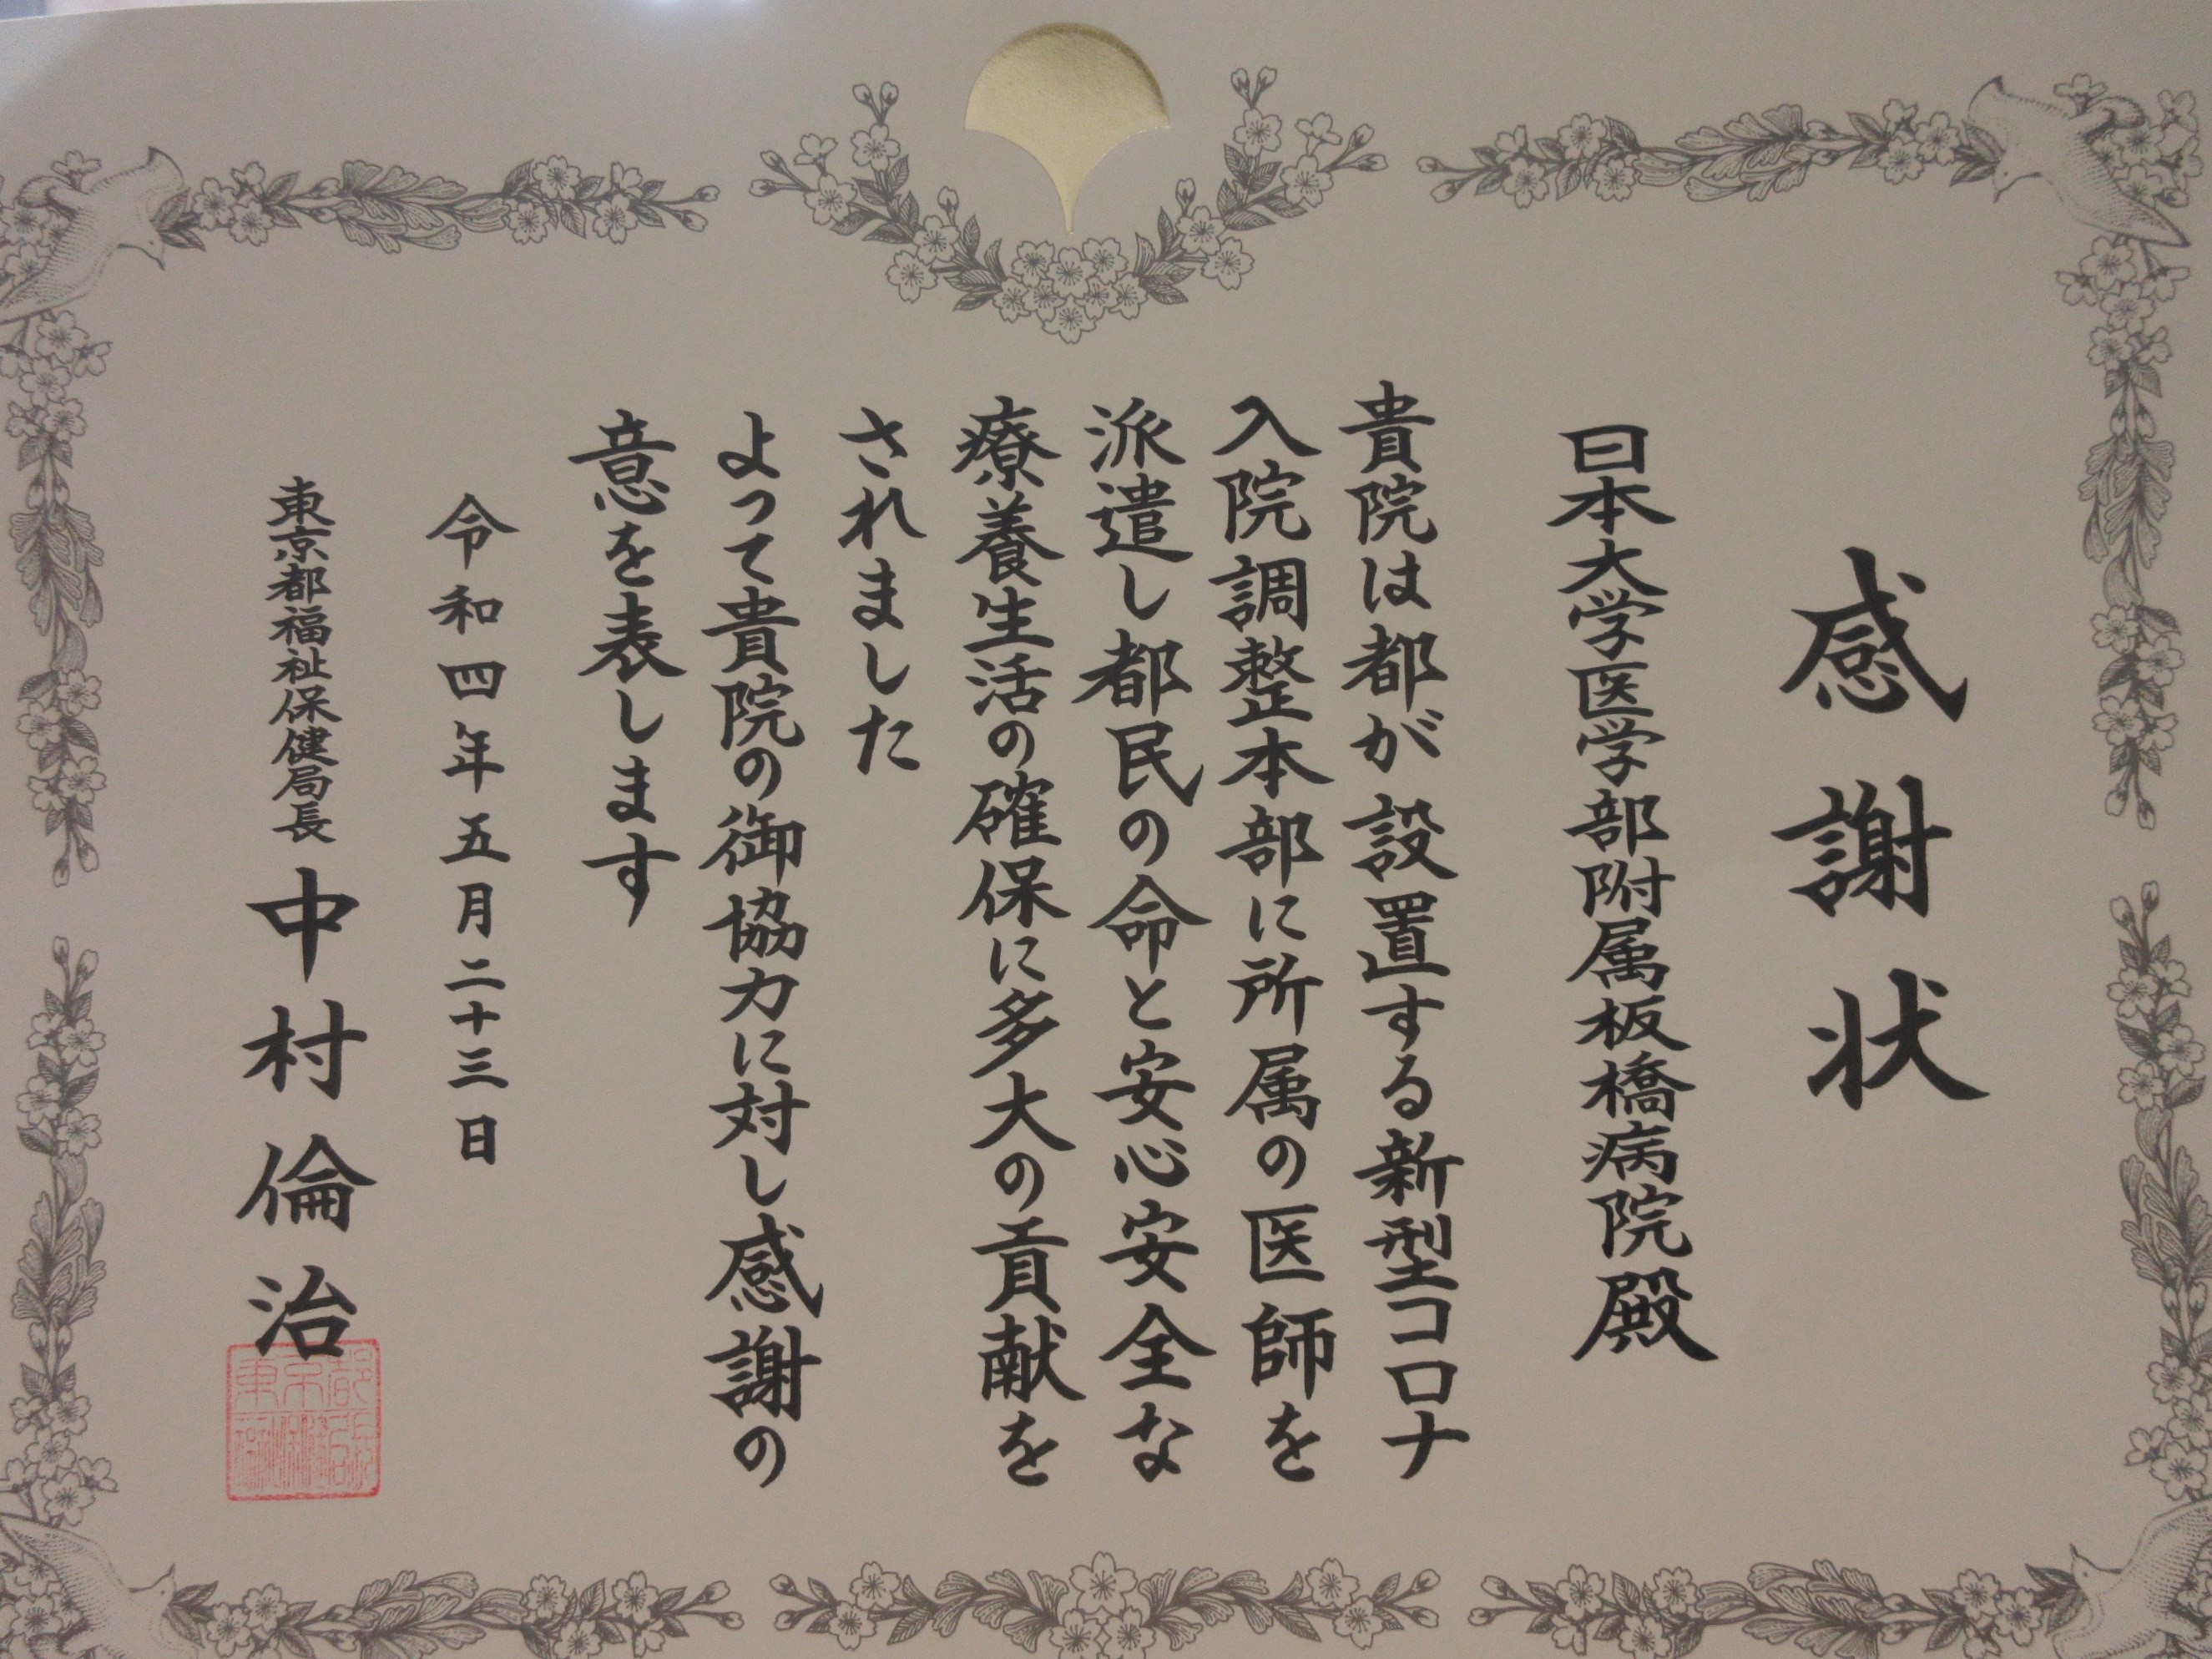 感謝状
日本大学医学部附属板橋病院殿
貴院は都が設置する新型コロナ
入院調整本部に所属の医師を
派遣し都民の命と安心安全な
療養生活の確保に多大の貢献を
されました
よって貴院の御協力に対し感謝の
意を表します
令和四年五月二十三日
東京都福祉保健局長 中村倫治